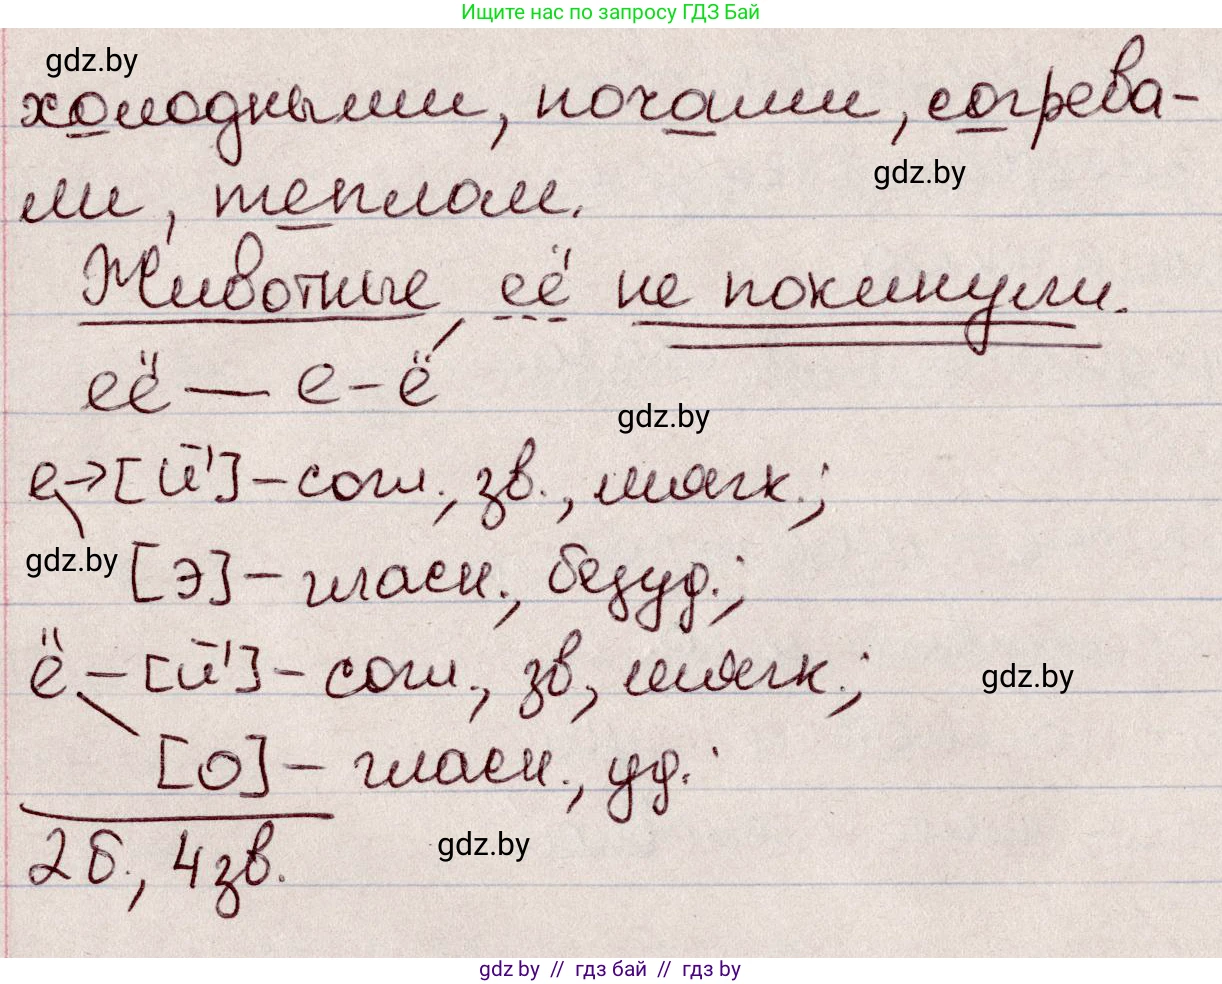 Ищите нас по запросу ГДЗ Бай
gdz.by
холодными, ночами, согрева-
gdz.by
ли, теплом.
Животные её не покинули.
её — е-ё́
gdz.by
е→[й'] – согл., зв., мягк.;
gdz.by
[э] – гласн., безуд.;
ё – [й'] – согл., зв, мягк.;
gdz.by
[о] – гласн., уд.
2 б., 4 зв.
gdz.by
gdz.by // гдз бай // гдз by